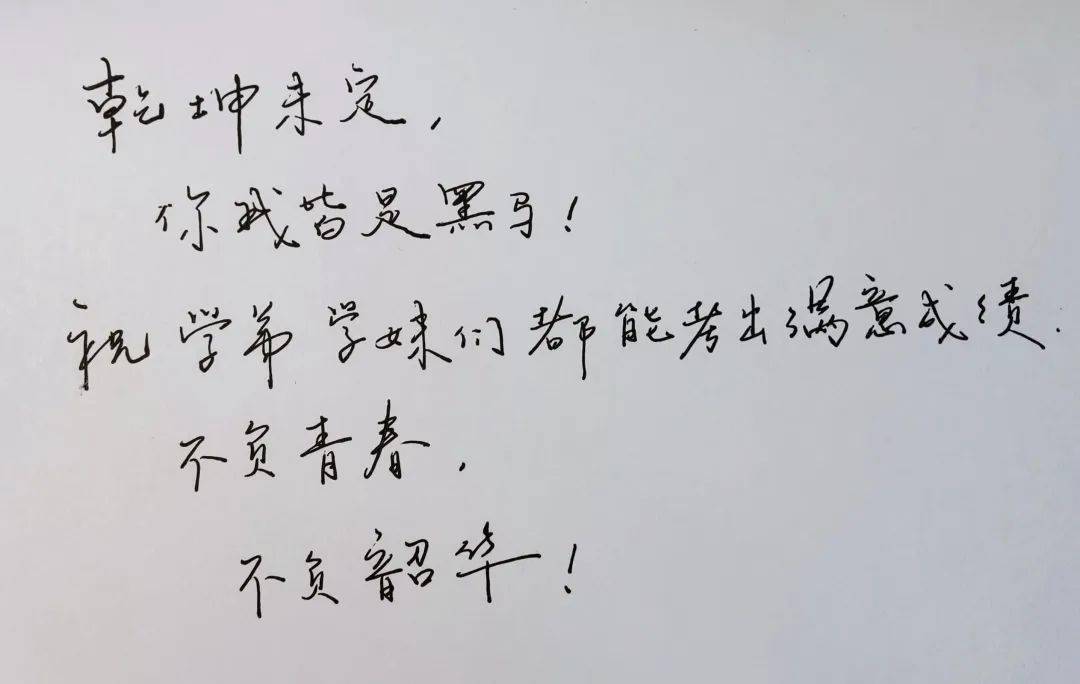 乾坤未定,
你我皆是黑马!
祝学弟学妹们都能考出满意成绩.
不负青春,
不负韶华!